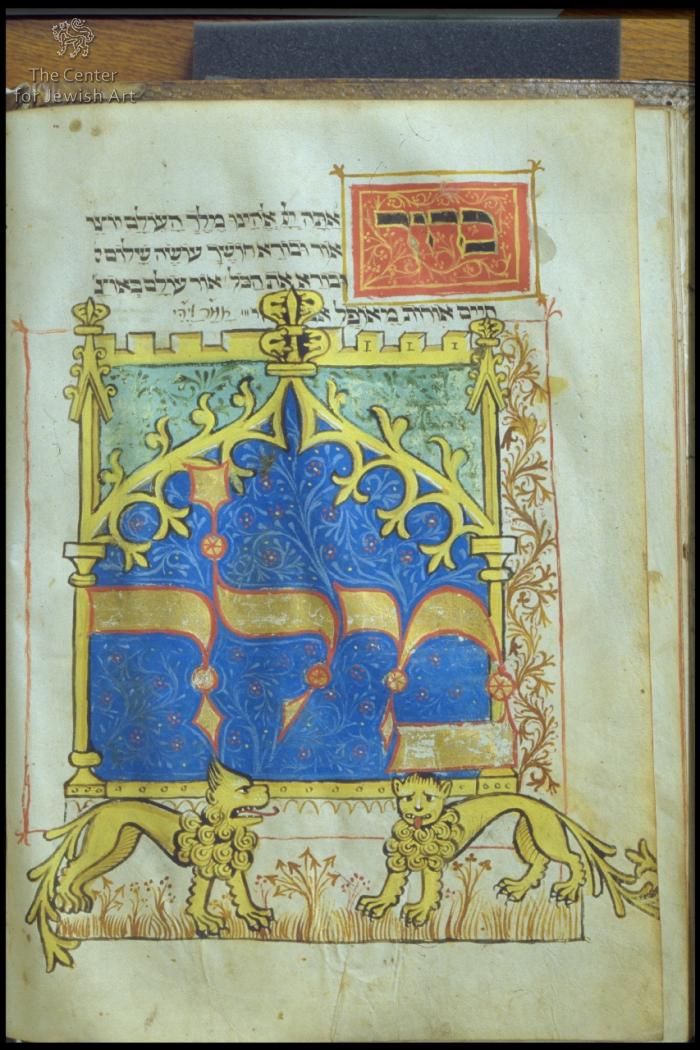 The Center
for Jewish Art
ברוך
אתה יי אלהינו מלך העולם יוצר
אור ובורא חושך עושה שלום
ובורא את הכל אור עולם באוצ
חיים אורות מאופל
מלך